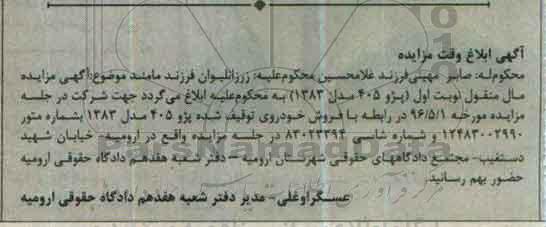 آگهی ابلاغ وقت مزایده
محکوم‌له: صابر مهینی‌فرزند غلامحسین محکوم‌علیه: زرزاتلیوان فرزند مامند موضوع: آگهی مزایده
مال منقول (نوبت اول (پـژو ۴۰۵ مـدل ۱۳۸۳) به محکوم‌علیه ابلاغ می‌گردد جهت شرکت در جلسه
مزایده مورخه ۹۶/۵/۱ در رابطه با فروش خودروی توقیف شده پژو ۴۰۵ مدل ۱۳۸۳ بشماره متور
۱۲۴۸۳۰۰۲۹۹۰ و شماره شاسی ۸۳۰۲۳۳۹۴ در جلسه مزایده واقع در ارومیه- خیابان شهید
دستغیب- مجتمع دادگاههای حقوقی شهرستان ارومیه – دفتر شعبه هفدهم دادگاه حقوقی ارومیه
حضور بهم رسانید.
عسگراوغلی- مدیر دفتر شعبه هفدهم دادگاه حقوقی ارومیه
ParsNamadData